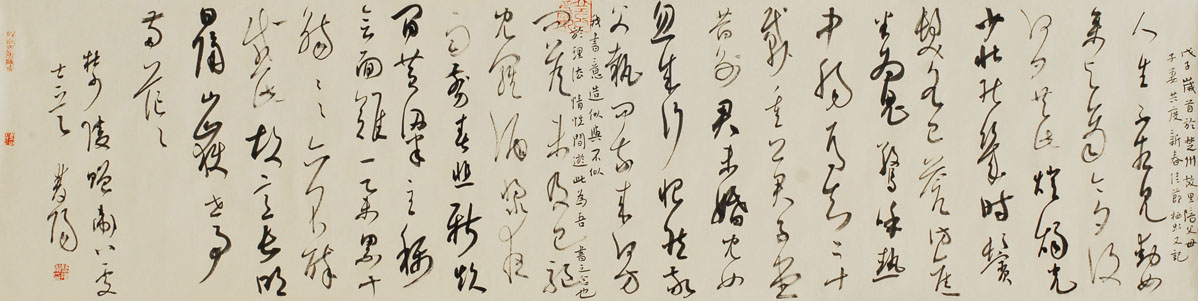 戊子歲首於楚州故里陪父母
子妻共度新春佳節 又記
人生不相見動如
參與商今夕復
何夕共此燈燭光
少壯能幾時鬢
髮各已蒼訪舊
半為鬼驚呼熱
中腸焉知二十
載重上君子堂
昔別君未婚兒女
忽成行怡然敬
父執問我來何方
我書意造似與不似
於理法情性間遊此為吾書之心也
問答未及已驅
兒羅酒漿夜
雨剪春韭新炊
間黃粱主稱
會面難一舉累十
觴〻〻亦不醉
感子故意長明
日隔山嶽世事
兩茫〻
杜少陵贈衛八處
士